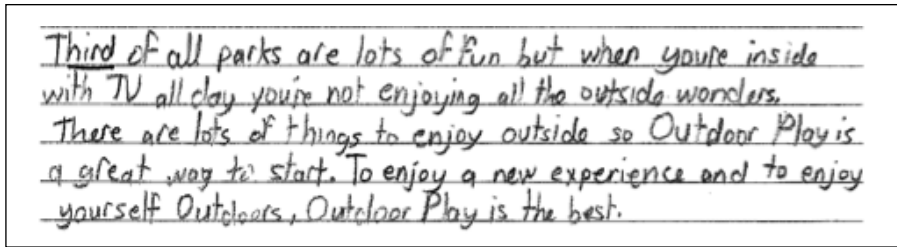 Third of all parks are lots of fun but when youre inside
with TV all day you're not enjoying all the outside wonders.
There are lots of things to enjoy outside so Outdoor Play is
a great way to start. To enjoy a new experience and to enjoy
yourself Outdoors, Outdoor Play is the best.